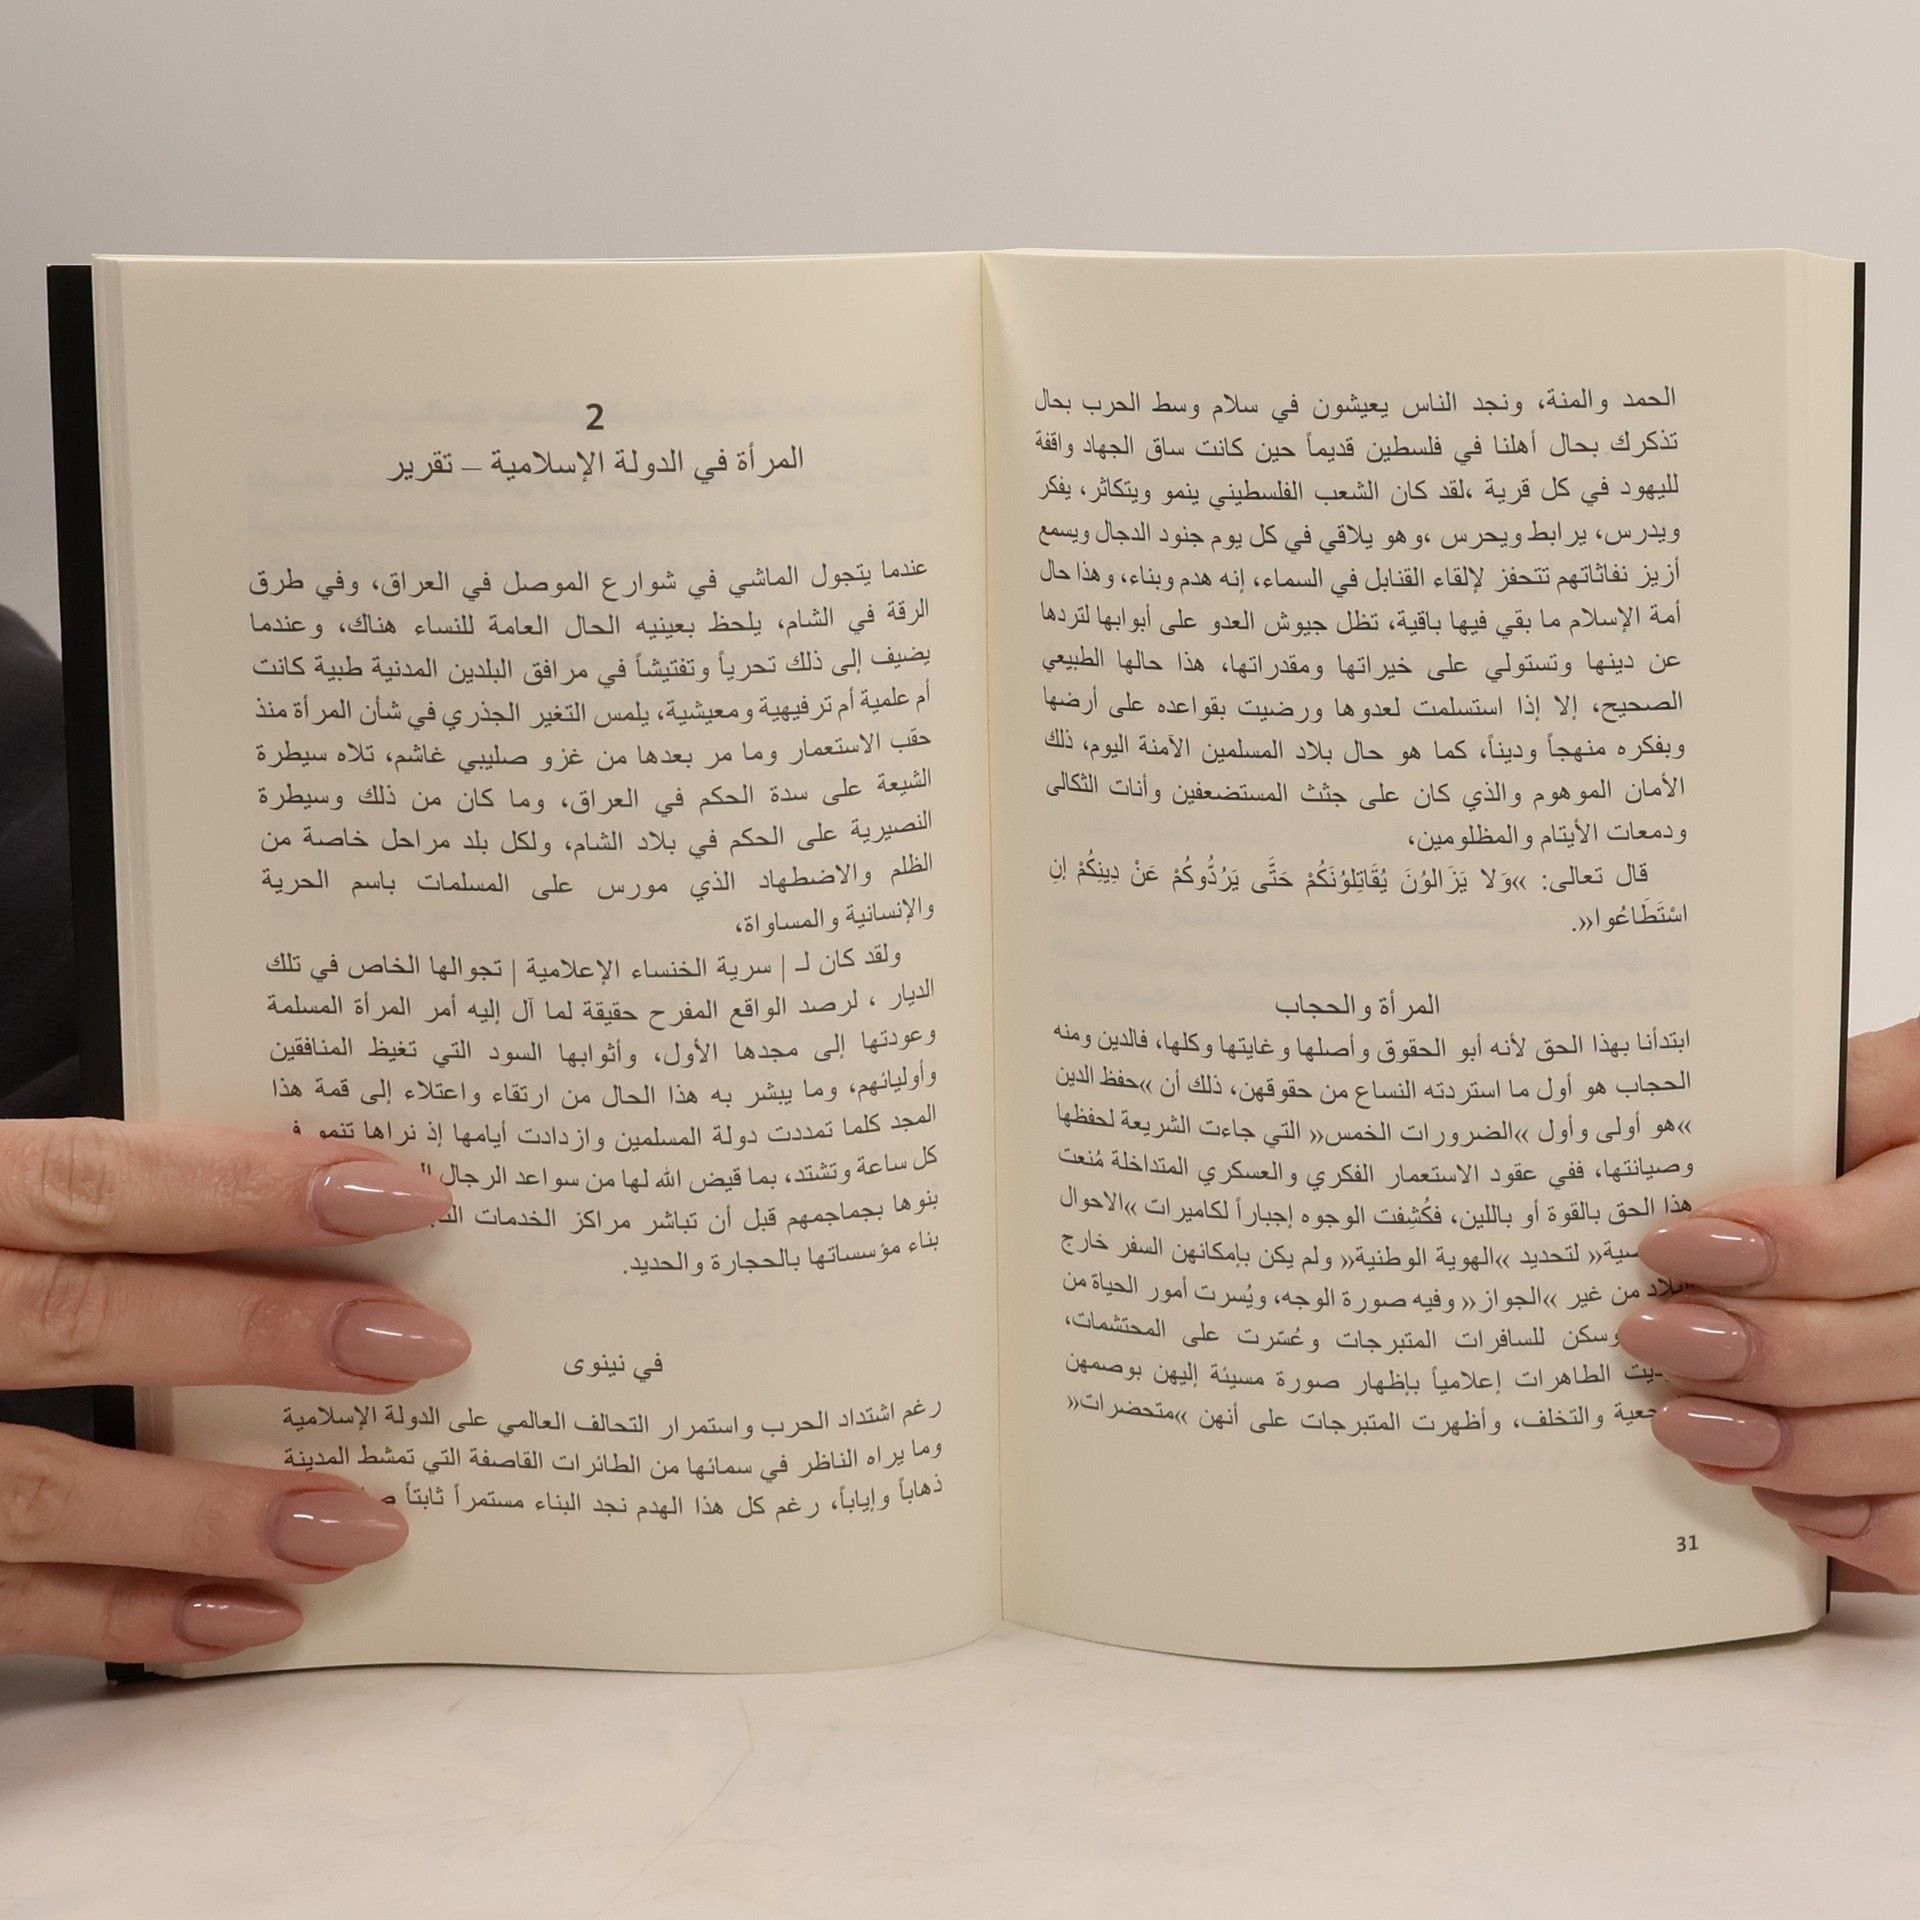 2
المرأة في الدولة الإسلامية – تقرير
عندما يتجول الماشي في شوارع الموصل في العراق، وفي طرق
الرقة في الشام، يلحظ بعينيه الحال العامة للنساء هناك، وعندما
يضيف إلى ذلك تحرياً وتفتيشاً في مرافق البلدين المدنية طبية كانت
أم علمية أم ترفيهية ومعيشية، يلمس التغير الجذري في شأن المرأة منذ
حقب الاستعمار وما مر بعدها من غزو صليبي غاشم، تلاه سيطرة
الشيعة على سدة الحكم في العراق، وما كان من ذلك وسيطرة
النصيرية على الحكم في بلاد الشام، ولكل بلد مراحل خاصة من
الظلم والاضطهاد الذي مورس على المسلمات باسم الحرية
والإنسانية والمساواة،
ولقد كان لـ | سرية الخنساء الإعلامية | تجوالها الخاص في تلك
الديار ، لرصد الواقع المفرح حقيقة لما آل إليه أمر المرأة المسلمة
وعودتها إلى مجدها الأول، وأثوابها السود التي تغيظ المنافقين
وأوليائهم، وما يبشر به هذا الحال من ارتقاء واعتلاء إلى قمة هذا
المجد كلما تمددت دولة المسلمين وازدادت أيامها إذ نراها تنمو
كل ساعة وتشتد، بما قيض الله لها من سواعد الرجال
بنوها بجماجمهم قبل أن تباشر مراكز الخدمات
بناء مؤسساتها بالحجارة والحديد.
في نينوى
رغم اشتداد الحرب واستمرار التحالف العالمي على الدولة الإسلامية
وما يراه الناظر في سمائها من الطائرات القاصفة التي تمشط المدينة
ذهاباً وإياباً، رغم كل هذا الهدم نجد البناء مستمراً ثابتاً
الحمد والمنة، ونجد الناس يعيشون في سلام وسط الحرب بحال
تذكرك بحال أهلنا في فلسطين قديماً حين كانت ساق الجهاد واقفة
لليهود في كل قرية ،لقد كان الشعب الفلسطيني ينمو ويتكاثر، يفكر
ويدرس، يرابط ويحرس ،وهو يلاقي في كل يوم جنود الدجال ويسمع
أزيز نفاثاتهم تتحفز لإلقاء القنابل في السماء، إنه هدم وبناء، وهذا حال
أمة الإسلام ما بقي فيها باقية، تظل جيوش العدو على أبوابها لتردها
عن دينها وتستولي على خيراتها ومقدراتها، هذا حالها الطبيعي
الصحيح، إلا إذا استسلمت لعدوها ورضيت بقواعده على أرضها
وبفكره منهجاً وديناً، كما هو حال بلاد المسلمين الآمنة اليوم، ذلك
الأمان الموهوم والذي كان على جثث المستضعفين وأنات الثكالى
ودمعات الأيتام والمظلومين،
قال تعالى: »وَلا يَزَالُونَ يُقَاتِلُونَكُمْ حَتَّى يَرُدُّوكُمْ عَنْ دِينِكُمْ إِنِ
اسْتَطَاعُوا«.
المرأة والحجاب
ابتدأنا بهذا الحق لأنه أبو الحقوق وأصلها وغايتها وكلها، فالدين ومنه
الحجاب هو أول ما استردته النساع من حقوقهن، ذلك أن »حفظ الدين
»هو أولى وأول »الضرورات الخمس« التي جاءت الشريعة لحفظها
وصيانتها، ففي عقود الاستعمار الفكري والعسكري المتداخلة مُنعت
هذا الحق بالقوة أو باللين، فكُشِفت الوجوه إجباراً لكاميرات »الاحوال
لتحديد »الهوية الوطنية« ولم يكن بإمكانهن السفر خارج
من غير »الجواز« وفيه صورة الوجه، ويُسرت أمور الحياة من
وسكن للسافرات المتبرجات وعُسّرت على المحتشمات،
الطاهرات إعلامياً بإظهار صورة مسيئة إليهن بوصمهن
والتخلف، وأظهرت المتبرجات على أنهن »متحضرات«
31